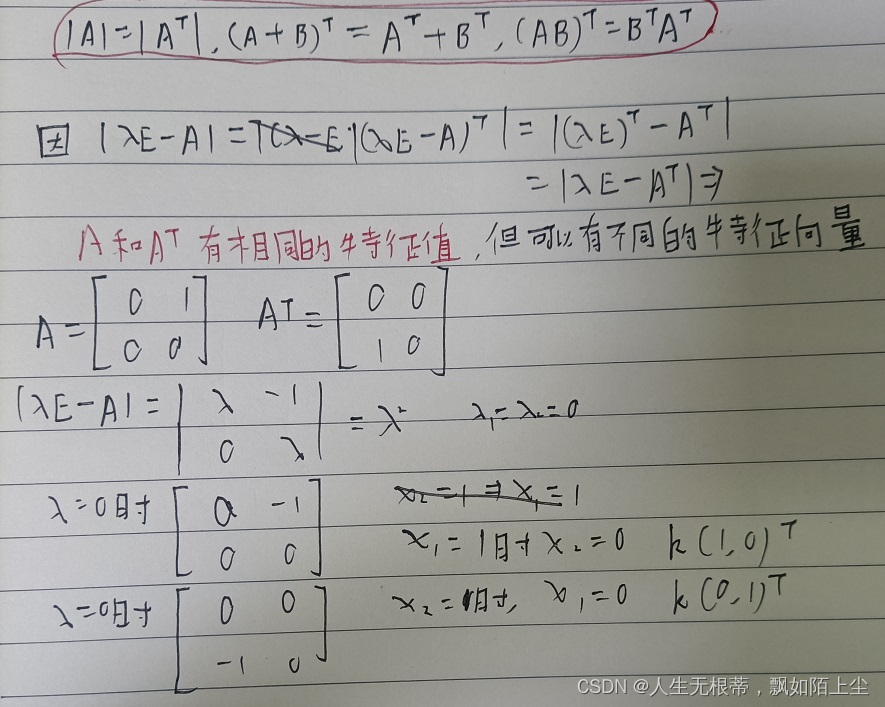 |A|=|Aᵀ|, (A+B)ᵀ=Aᵀ+Bᵀ, (AB)ᵀ=BᵀAᵀ
|λE-A|=|(λE-A)ᵀ|=|(λE)ᵀ-Aᵀ|
=|λE-Aᵀ|⇒
A和Aᵀ有相同的特征值,但可以有不同的特征向量
A=[0 1
0 0] Aᵀ=[0 0
1 0]
|λE-A|=|λ -1
0 λ|=λ² λ₁=λ₂=0
λ=0时[0 -1
0 0]
x₂=1 x₁=1
x₁=1时x₂=0 k(1,0)ᵀ
λ=0时[0 0
-1 0] x₂=1时, x₁=0 k(0,1)ᵀ
CSDN @人生无根蒂，飘如陌上尘